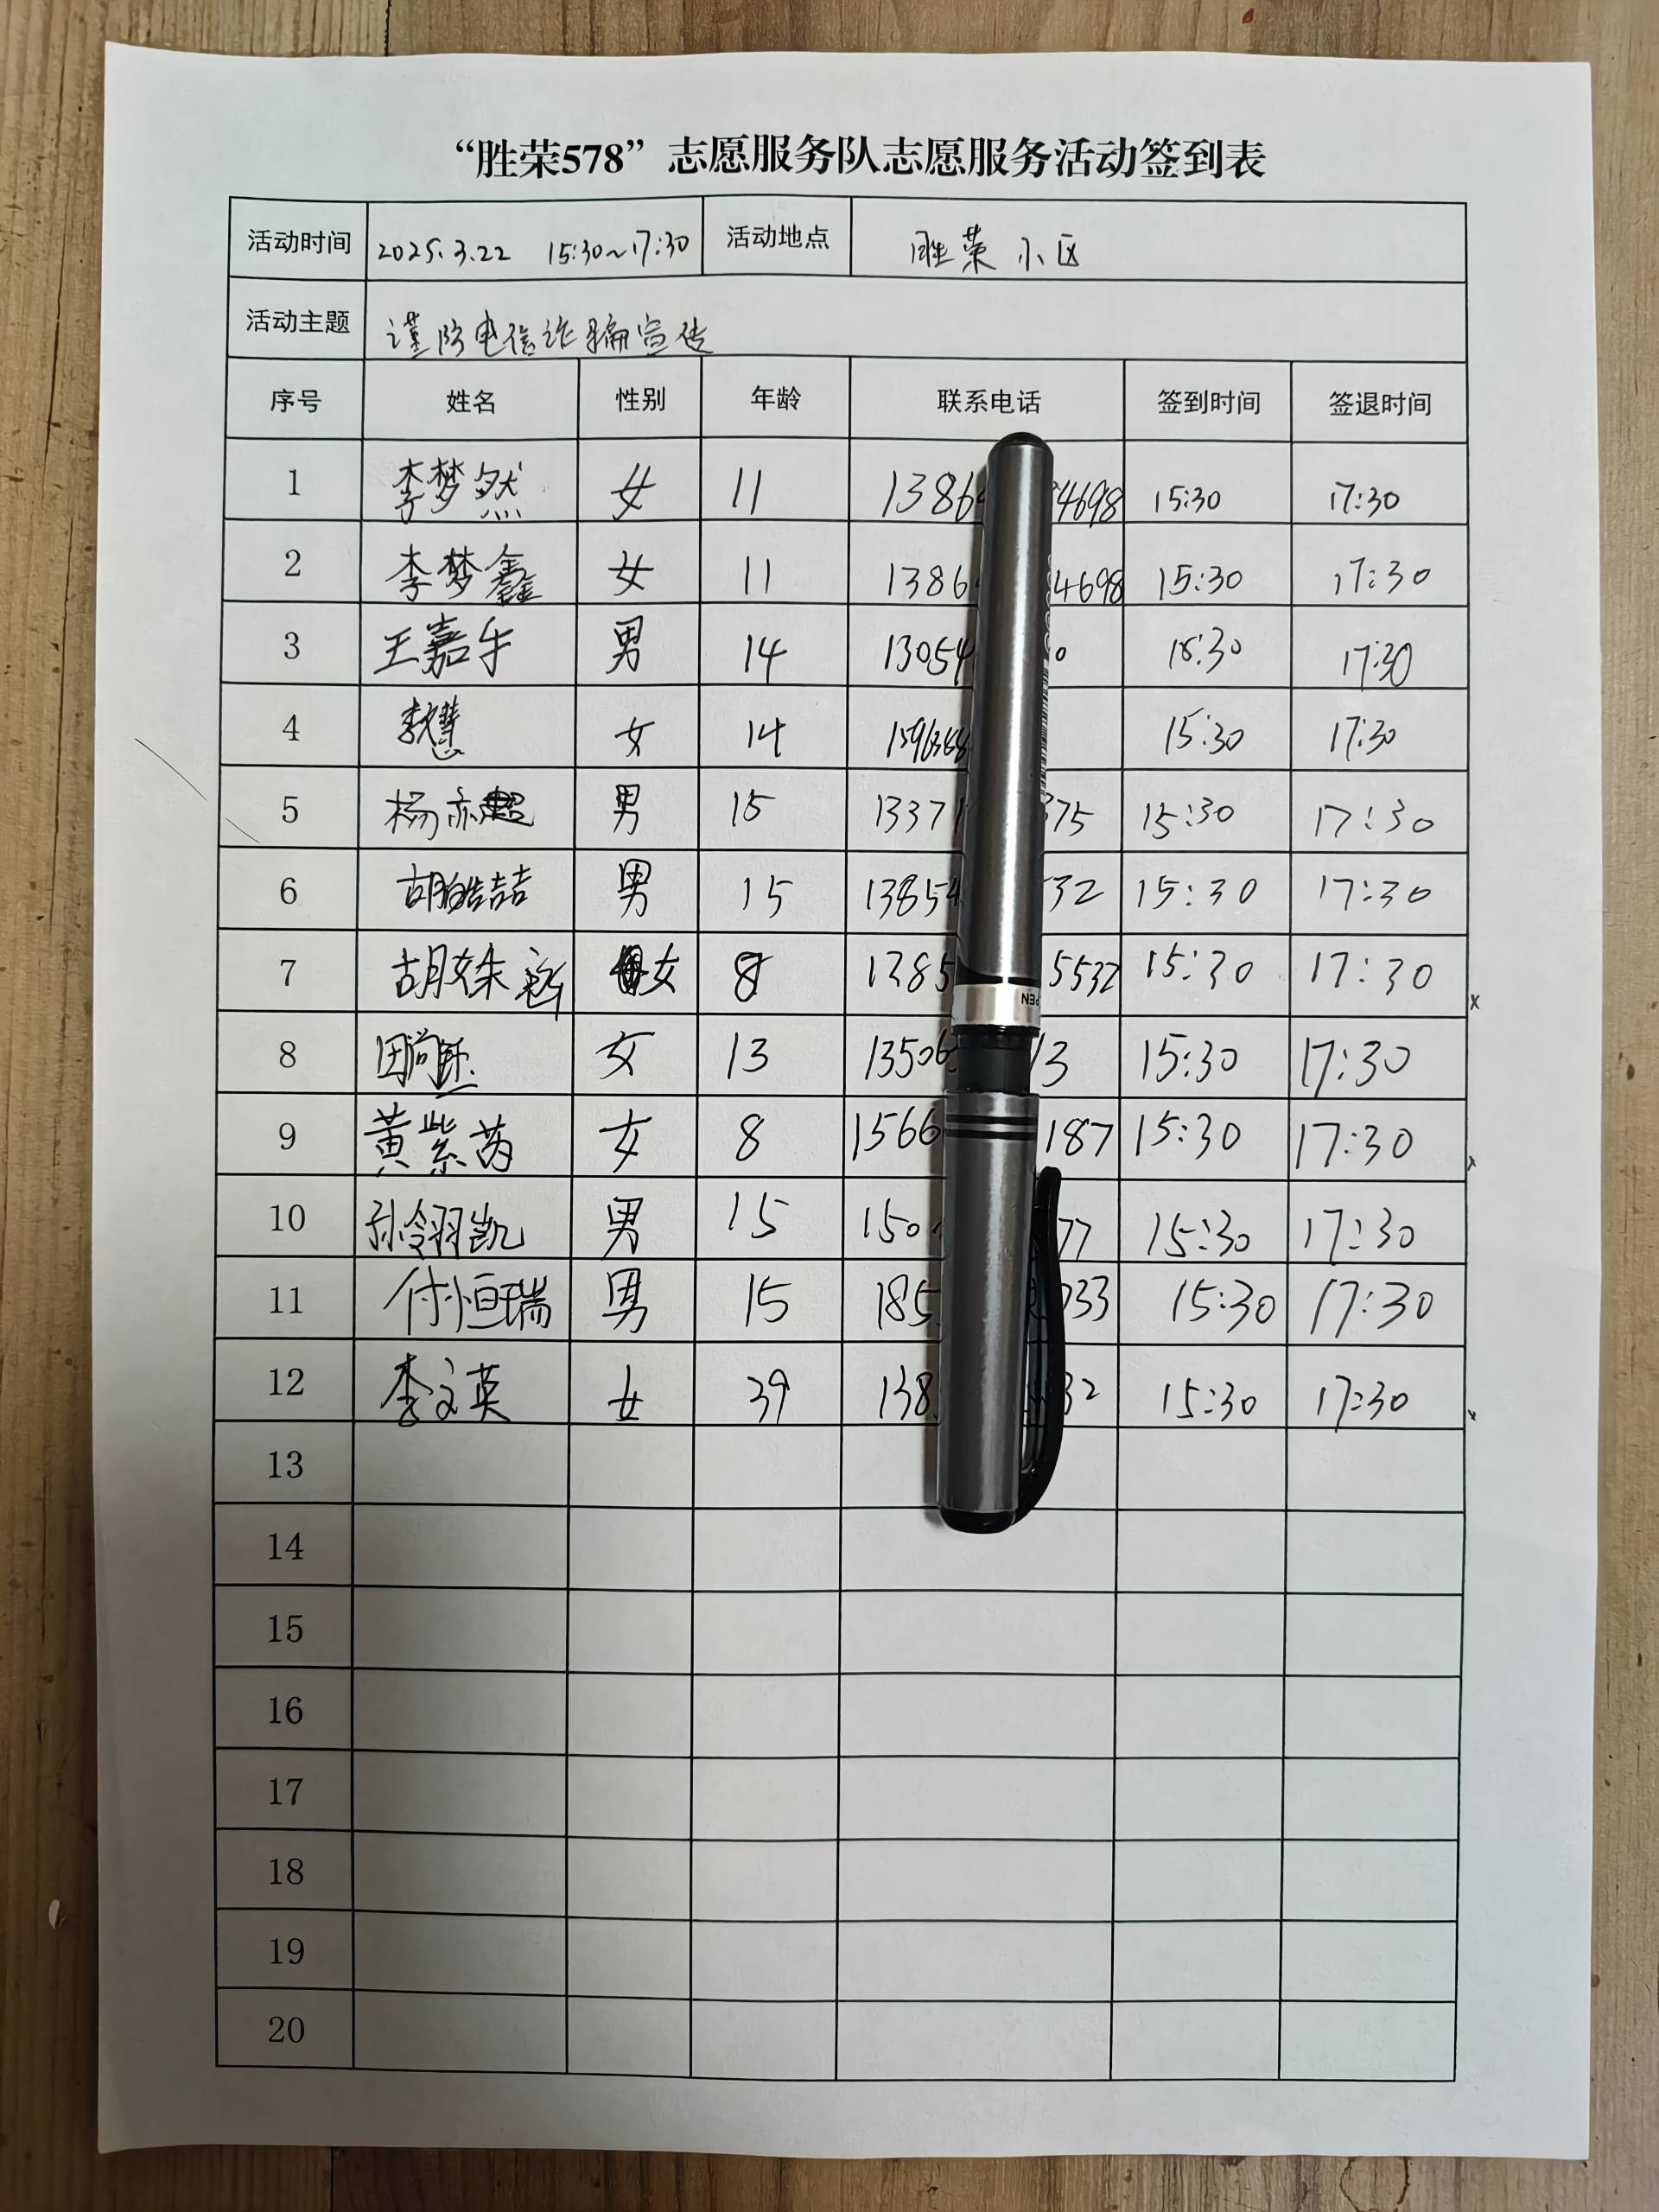 “胜荣578”志愿服务队志愿服务活动签到表
活动时间 2025.3.22 15:30~17:30 活动地点 胜荣小区
活动主题 谨防电信诈骗宣传
序号 姓名 性别 年龄 联系电话 签到时间 签退时间
1 李梦然 女 11 1386 4698 15:30 17:30
2 李梦鑫 女 11 1386 4698 15:30 17:30
3 王嘉 男 14 13054 0 15:30 17:30
4 女 14 15:30 17:30
5 杨亦 男 15 1337 375 15:30 17:30
6 胡皓喆 男 15 13854 532 15:30 17:30
7 胡姝 女 8 1385 5532 15:30 17:30
8 田尚 女 13 13506 13 15:30 17:30
9 黄紫芮 女 8 1566 187 15:30 17:30
10 孙翎凯 男 15 150 77 15:30 17:30
11 付恒瑞 男 15 185 033 15:30 17:30
12 李文英 女 39 138 32 15:30 17:30
13
14
15
16
17
18
19
20
PEN